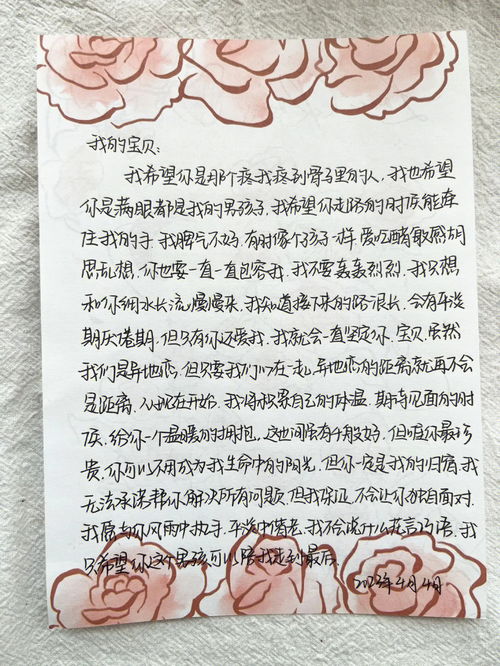 我的宝贝：
我希望你是那个疼我疼到骨子里的人，我也希望
你是满眼都是我的男孩子，我希望你走路的时候能牵
住我的手，我脾气不好，有时像个孩子一样，爱吃醋敏感胡
思乱想，你也要一直一直包容我，我不要轰轰烈烈，我只想
和你细水长流慢慢来，我知道接下来的路很长，会有平淡
期厌倦期，但只有你还要我，我就会一直坚定你，宝贝，虽然
我们是异地恋，但只要我们心在一起，异地恋的距离就再不会
是距离，从现在开始，我将积累自己的体温，期待见面的时
候，给你一个温暖的拥抱，这世间虽有千般好，但唯你最珍
贵，你可以不用成为我生命中的阳光，但你一定是我的归宿，我
无法承诺帮你解决所有问题，但我保证，不会让你独自面对，
我愿与你风雨中执手，平淡中偕老，我不会说什么花言巧语，我
只希望你这个男孩可以陪我走到最后。
2023年4月4日